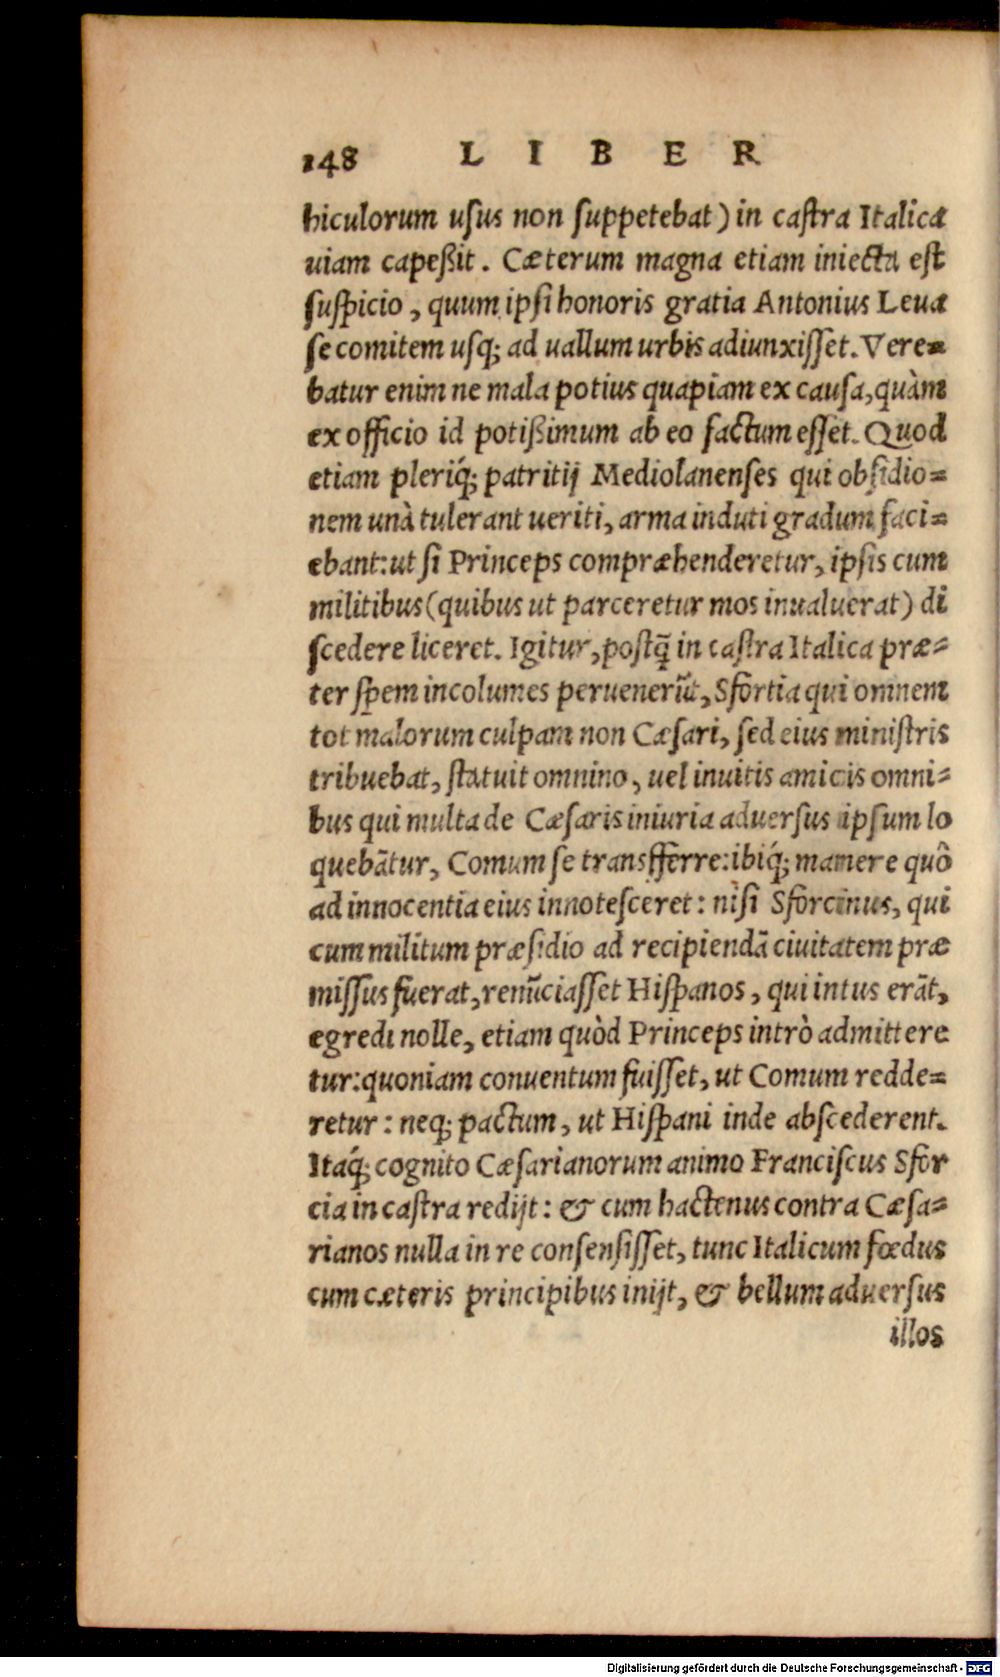 148 LIBER
hiculorum uſus non ſuppetebat) in caſtra Italica
uiam capeßit. Cæterum magna etiam iniecta eſt
ſuſpicio, quum ipſi honoris gratia Antonius Leua
ſe comitem uſq; ad uallum urbis adiunxiſſet. Vere=
batur enim ne mala potius quapiam ex cauſa, quàm
ex officio id potißimum ab eo factum eſſet. Quod
etiam pleriq́; patritij Mediolanenſes qui obſidio=
nem unà tulerant ueriti, arma induti gradum faci=
ebant: ut ſi Princeps compræhenderetur, ipſis cum
militibus (quibus ut parceretur mos inualuerat) di
ſcedere liceret. Igitur, poſtq̃ in caſtra Italica præ=
ter ſpem incolumes peruenerũt, Sfortia qui omnem
tot malorum culpam non Cæſari, ſed eius miniſtris
tribuebat, ſtatuit omnino, uel inuitis amicis omni=
bus qui multa de Cæſaris iniuria aduerſus ipſum lo
quebãtur, Comum ſe transfferre: ibiq́; manere quò
ad innocentia eius innoteſceret: niſi Sforcinus, qui
cum militum præſidio ad recipiendã ciuitatem præ
miſſus fuerat, renũciaſſet Hiſpanos, qui intus erãt,
egredi nolle, etiam quòd Princeps intrò admittere
tur: quoniam conuentum fuiſſet, ut Comum redde=
retur: neq; pactum, ut Hiſpani inde abſcederent.
Itaq́; cognito Cæſarianorum animo Franciſcus Sfor
cia in caſtra redijt: & cum hactenus contra Cæſa=
rianos nulla in re conſenſiſſet, tunc Italicum fœdus
cum cæteris principibus inijt, & bellum aduerſus
illos
Digitalisierung gefördert durch die Deutsche Forschungsgemeinschaft - DFG